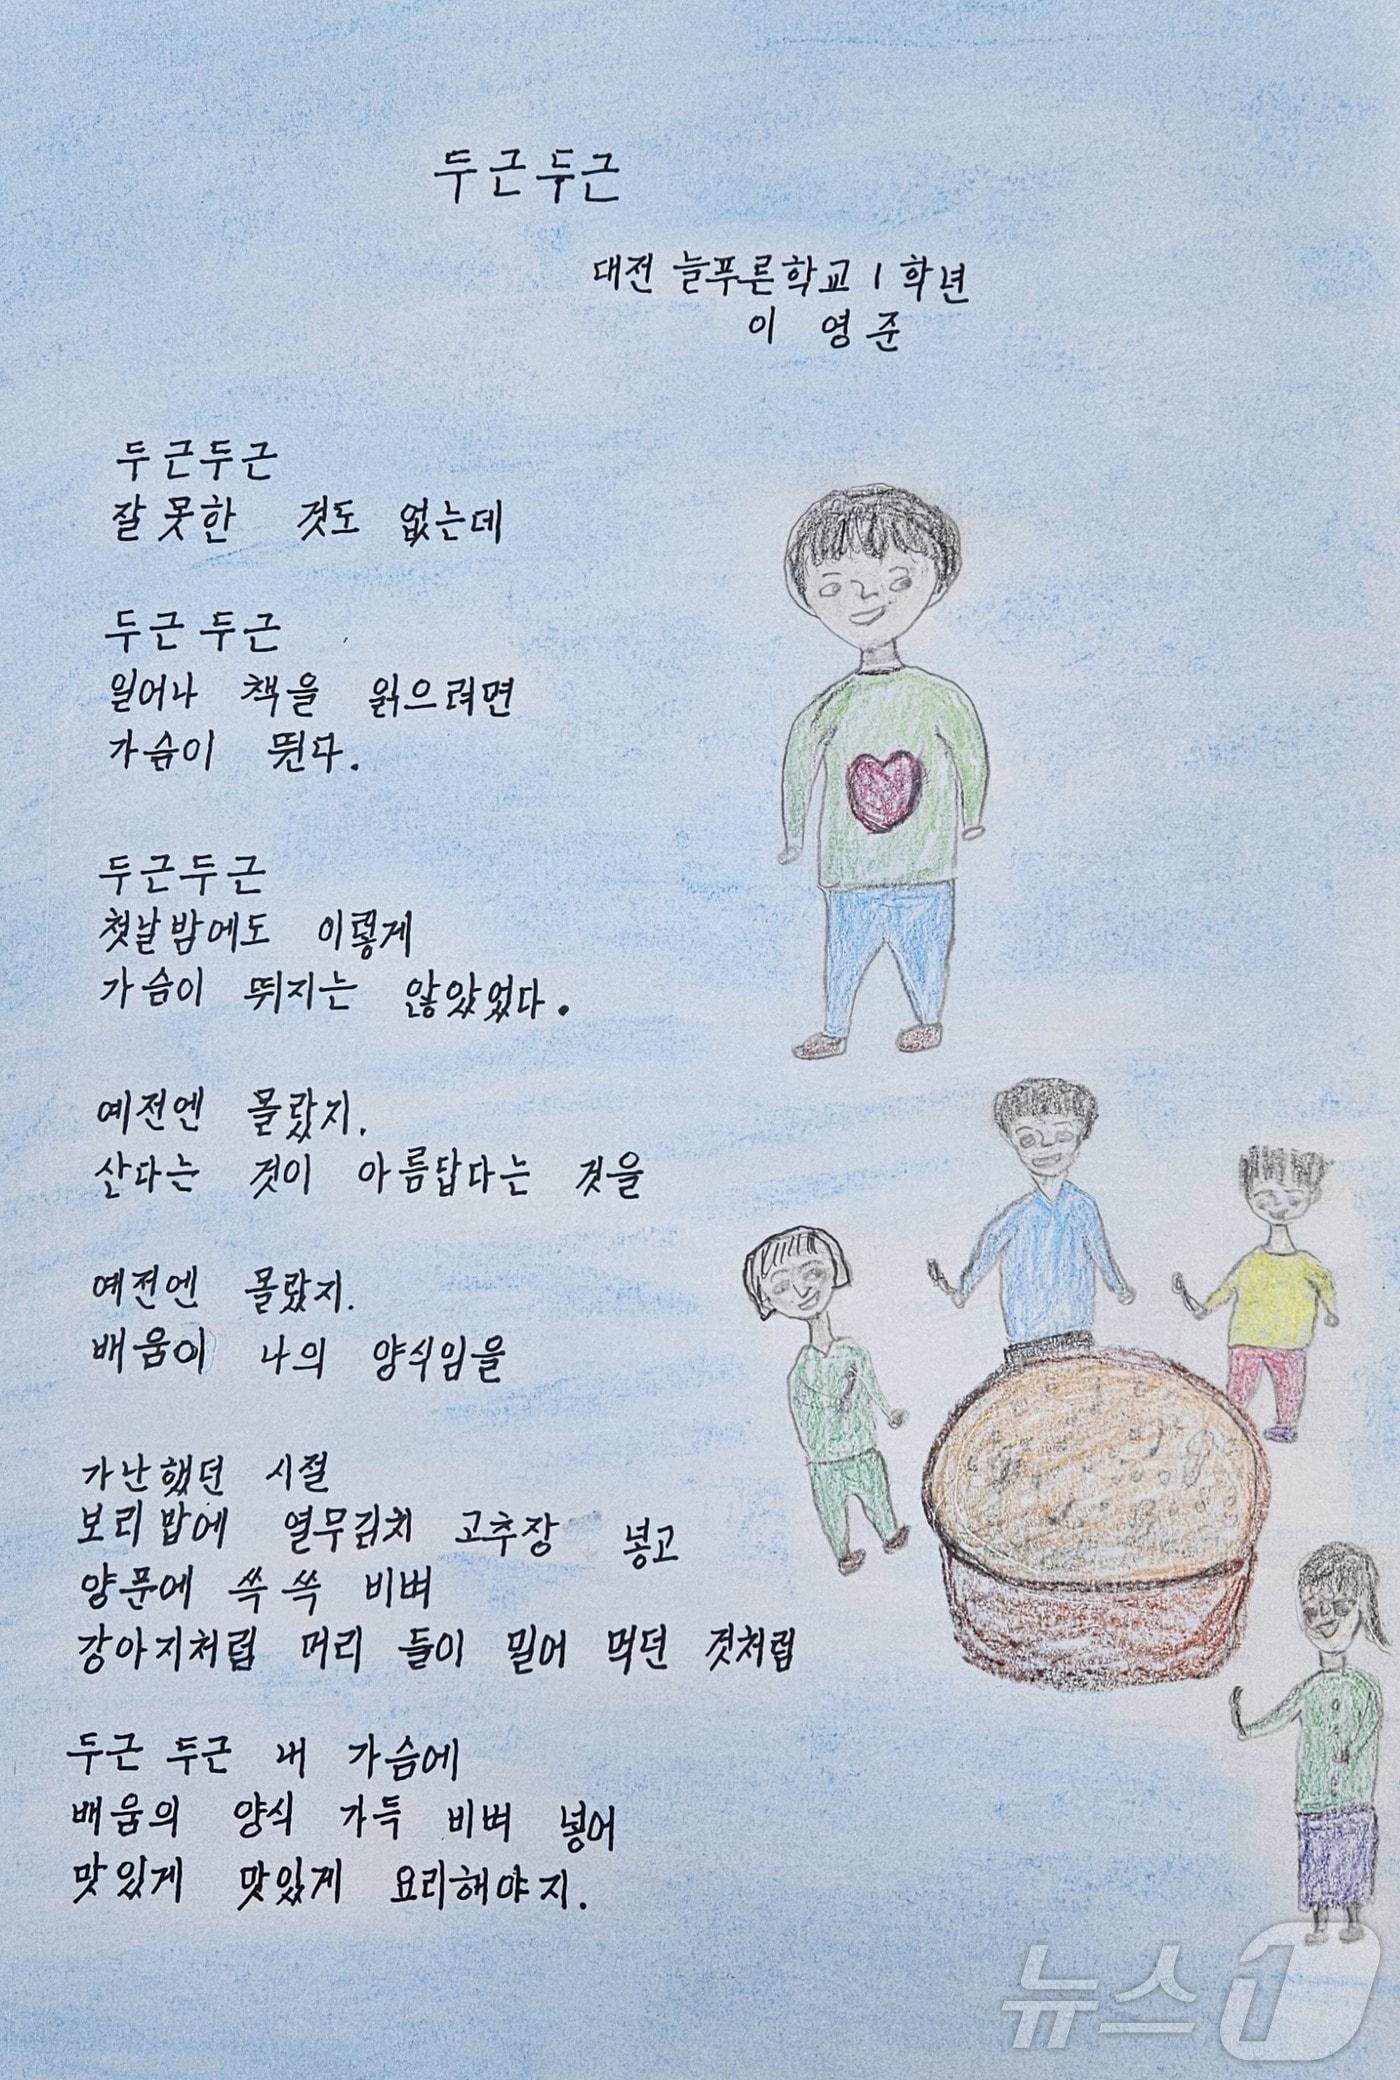 두근두근
대전 늘푸른학교 1학년
이 영준
두근두근
잘못한 것도 없는데
두근두근
일어나 책을 읽으려면
가슴이 뛴다.
두근두근
첫날밤에도 이렇게
가슴이 뛰지는 않았었다.
예전엔 몰랐지.
산다는 것이 아름답다는 것을
예전엔 몰랐지.
배움이 나의 양식임을
가난했던 시절
보리밥에 열무김치 고추장 넣고
양푼에 쓱쓱 비벼
강아지처럼 머리 들이 밀어 먹던 것처럼
두근 두근 내 가슴에
배움의 양식 가득 비벼 넣어
맛있게 맛있게 요리해야지.
뉴스1